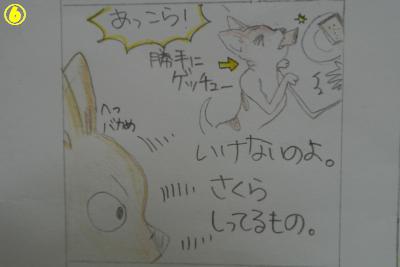 6
あっこら!
勝手に
ゲッチュー
へっ
バカめ
いけないのよ。
さくら
しってるもの。